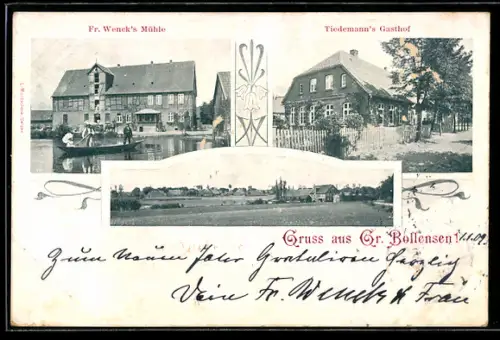 Fr. Wenck's Mühle
Tiedemann's Gasthof
Gruss aus Gr. Bollensen!
1.1.09.
Zum neuen Jahr Gratuliren herzlig
Dein Fr. Wenck & Frau